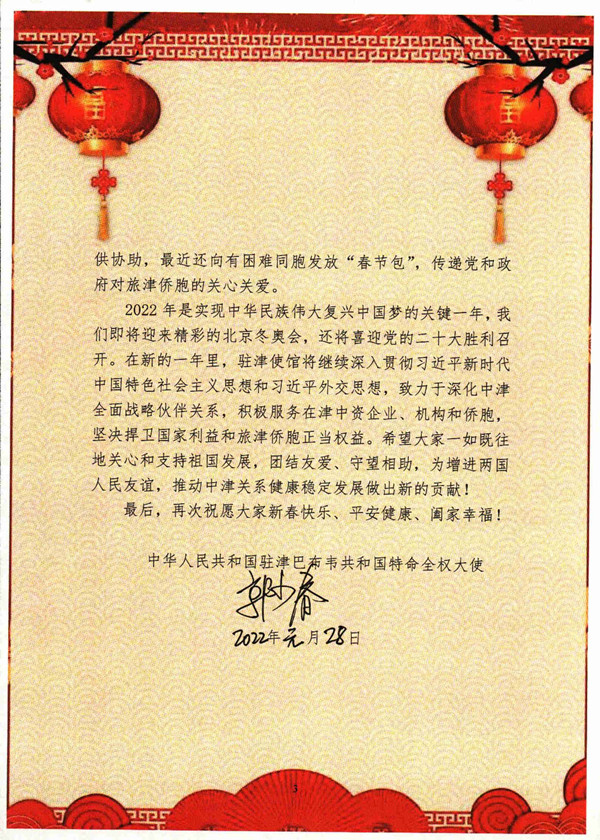 供协助，最近还向有困难同胞发放“春节包”，传递党和政
府对旅津侨胞的关心关爱。
2022 年是实现中华民族伟大复兴中国梦的关键一年，我
们即将迎来精彩的北京冬奥会，还将喜迎党的二十大胜利召
开。在新的一年里，驻津使馆将继续深入贯彻习近平新时代
中国特色社会主义思想和习近平外交思想，致力于深化中津
全面战略伙伴关系，积极服务在津中资企业、机构和侨胞，
坚决捍卫国家利益和旅津侨胞正当权益。希望大家一如既往
地关心和支持祖国发展，团结友爱、守望相助，为增进两国
人民友谊，推动中津关系健康稳定发展做出新的贡献！
最后，再次祝愿大家新春快乐、平安健康、阖家幸福！
中华人民共和国驻津巴布韦共和国特命全权大使
郭少春
2022年元月28日
3